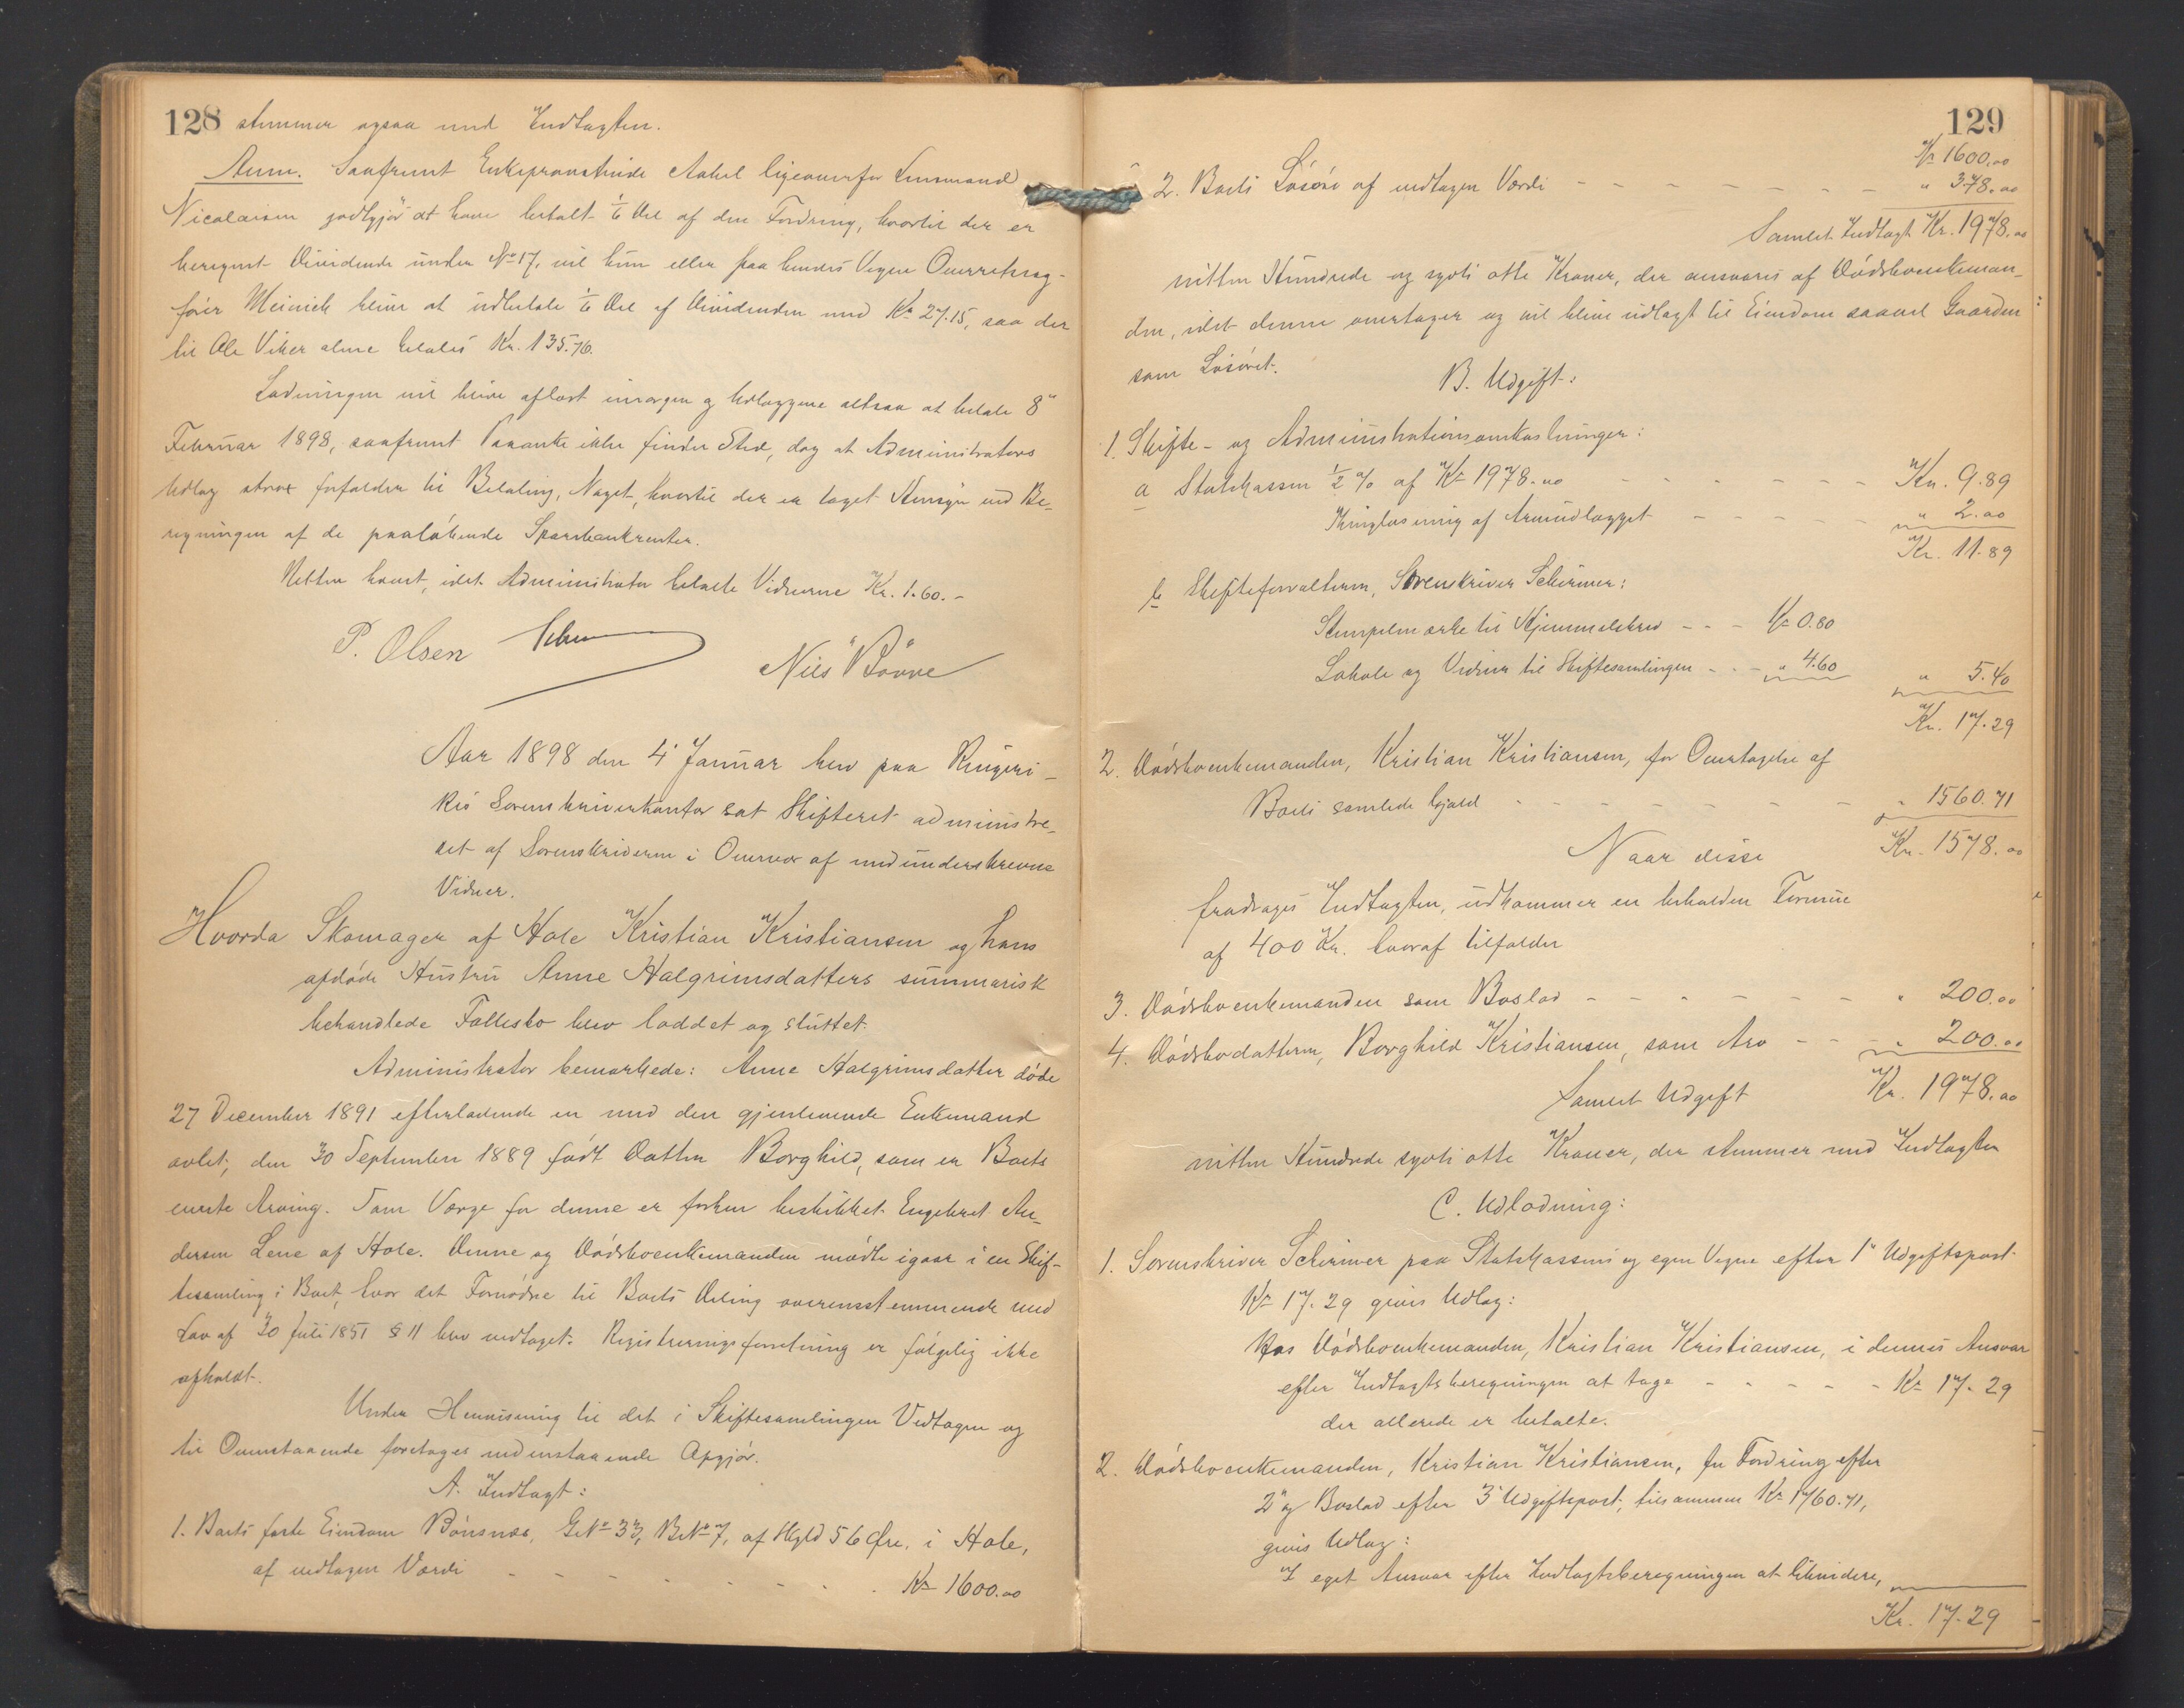 128
stemmer ogsaa med Indtægten.
Anm. Saafremt Enkeprovstinde Aabel ligeoverfor Lensmand
Nicolaisen godtgjør at have betalt 1/6 Del af den Fordring, hvortil der er
beregnet Dividende under No 17, vil hun eller paa hendes Vegne Overretssag-
fører Meinich blive at udbetale 1/6 Del af Dividenden med Kr 27.15, saa der
til Ole Viker alene betales Kr. 135.76.
Lodningen vil blive aflæst imorgen og Udlæggene altsaa at betale 8"
Februar 1898, saafremt Paaanke ikke finder Sted, dog at Administrators
Udlæg strax forfalder til Betaling, Noget, hvortil der er taget Hensyn ved Be-
regningen af de paaløbende Sparebankrenter.
Retten hævet, idet Administrator betalte Vidnerne Kr. 1.60.-
P. Olsen
Nils Bønne
Aar 1898 den 4' Januar blev paa Ringeri-
kes Sorenskriverkontor sat Skifteret administre-
ret af Sorenskriveren i Overvær af medunderskrevne
Vidner.
Hvorda Skomager af Hole Kristian Kristiansen og hans
afdøde Hustru Anne Halgrimsdatters summarisk
behandlede Fællesbo blev loddet og sluttet.
Administrator bemærkede: Anne Halgrimsdatter døde
27 December 1891 efterladende en med den gjenlevende Enkemand
avlet, den 30 September 1889 født Datter Borghild, som er Boets
eneste Arving. Som Værge for denne er forhen beskikket Engebret An-
dersen Lene af Hole. Denne og Dødsboenkemanden mødte igaar i en Skif-
tesamling i Boet, hvor det Fornødne til Boets Deling overensstemmende med
Lov af 30 Juli 1851 § 11 blev vedtaget. Registreringsforretning er følgelig ikke
afholdt.
Under Henvisning til det i Skiftesamlingen Vedtagne og
til Ovenstaaende foretages nedenstaaende Opgjør.
A. Indtægt:
1. Boets faste Eiendom Bønsnæs, GrNo 33, BrNo 7, af Skyld 56 Øre, i Hole,
af vedtagen Værdi - - - - - - - - Kr 1600.00
129
Kr 1600.00
2. Boets Løsøre af vedtagen Værdi - - - - - - - - " 378.00
Samlet Indtægt Kr. 1978.00
nitten Hundrede og sytti otte Kroner, der ansvares af Dødsboenkeman-
den, idet denne overtager og vil blive udlagt til Eiendom saavel Gaarden
som Løsøret.
B. Udgift:
1. Skifte- og Administrationsomkostninger:
a Statskassen 1/2 % af Kr 1978.00 - - - - - - Kr. 9.89
Thinglæsning af Arveudlægget - - - - " 2.00
Kr. 11.89
b Skifteforvalteren, Sorenskriver Schirmer:
Stempelmærke til Hjemmelsbrev - - - Kr 0.80
Lokale og Vidner til Skiftesamlingen - - - " 4.60
" 5.40
Kr. 17.29
2. Dødsboenkemanden, Kristian Kristiansen, for Overtagelse af
Boets samlede Gjæld - - - - - - - " 1560.71
Kr. 1578.00
Naar disse
fradrages Indtægten, udkommer en beholden Formue
af 400 Kr. hvoraf tilfalder
3. Dødsboenkemanden som Boslod - - - - - - - " 200.00
4. Dødsbodatteren, Borghild Kristiansen, som Arv - - - " 200.00
Samlet Udgift Kr. 1978.00
nitten Hundrede sytti otte Kroner, der stemmer med Indtægten
C. Udlodning:
1. Sorenskriver Schirmer paa Statskassens og egne Vegne efter 1" Udgiftspost
Kr 17.29 gives Udlæg:
Hos Dødsboenkemanden, Kristian Kristiansen, i dennes Ansvar
efter Indtægtsberegningen at tage - - - - - Kr 17.29
der allerede er betalte.
2. Dødsboenkemanden, Kristian Kristiansen, for Fordring efter
2" og Boslod efter 3' Udgiftspost, tilsammen Kr 1760.71,
gives Udlæg:
I eget Ansvar efter Indtægtsberegningen at likvidere,
Kr. 17.29